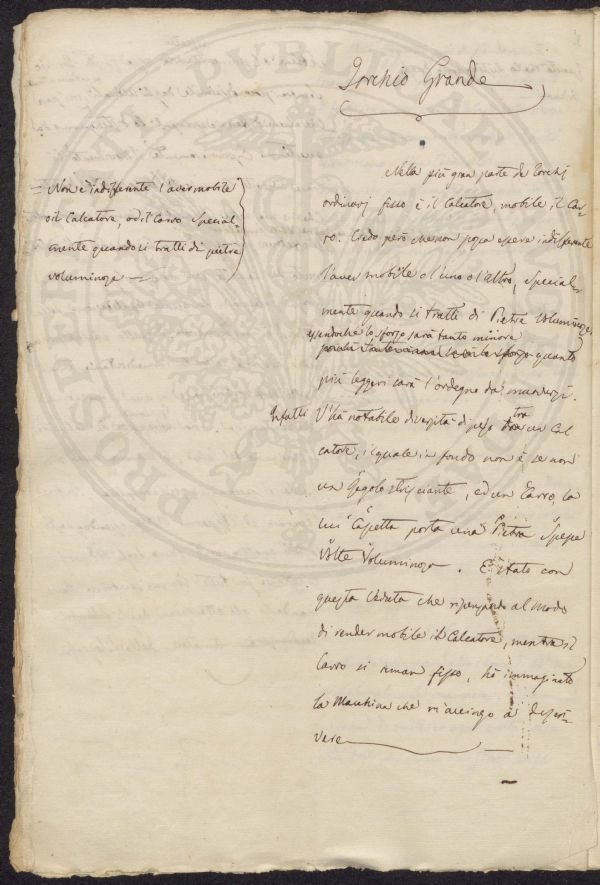 Torchio Grande
Nella più gran parte de Torchj
ordinarj fisso è il Calcatore, mobile il Car-
ro. Credo però che non possa essere indifferente
l'aver mobile o l'uno o l'altro, special-
mente quando si tratti di Pietre Voluminose,
essendochè lo sforzo sarà tanto minore
quanto
più leggeri sarà l'ordegno da muoversi.
Infatti V'hà notabile diversità di peso tra un Cal
catore, il quale in fondo non è se non
un Regolo strisciante, ed un Carro, la
cui Cassetta porta una Pietra Spesse
Volte Voluminosa. E' stato con
questa Veduta che ripensando al modo
di render mobile il Calcatore, mentre il
Carro si riman fisso, hò immaginato
la Macchina che m'accingo à descri-
vere
= Non è indifferente l'aver mobile
o il Calcatore, od il Carro special-
mente quando si tratti di pietre
voluminose =
PUBLICAE
PROSPER